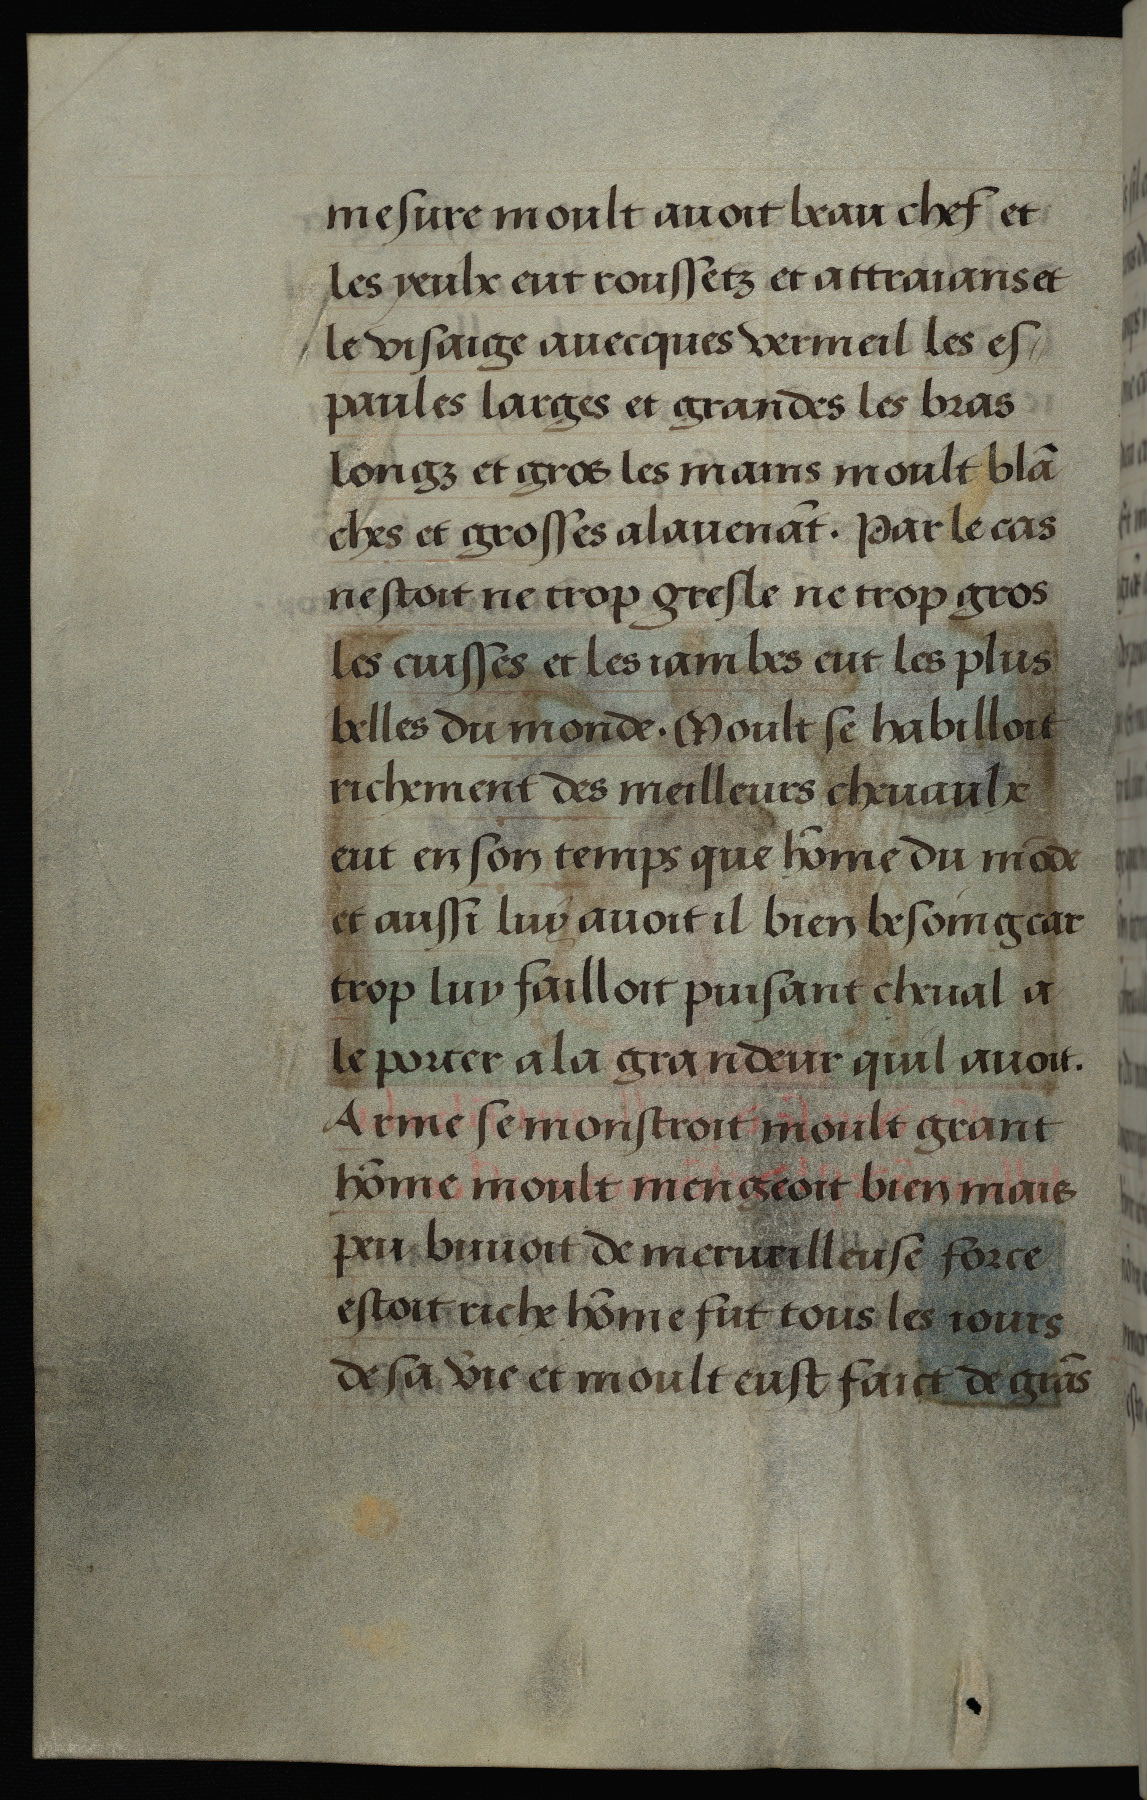 mesure moult auoit beau chef et
les yeulx eut roussetz et attraians et
le visaige auecques vermeil les es//
paules larges et grandes les bras
longz et gros les mains moult blā
ches et grosses alauenāt. Par le cas
nestoit ne trop gresle ne trop gros
les cuisses et les iambes eut les plus
belles du monde. Moult se habilloit
richement des meilleurs cheuaulx
eut en son temps que hōme du mōde
et aussi luy auoit il bien besoing car
trop luy failloit puisant cheual a
le porter a la grandeur quil auoit.
Arme se monstroit moult grant
hōme moult mengeoit bien mais
peu buuoit de merueilleuse force
estoit riche hōme fut tous les iours
de sa vie et moult eust faict de grās